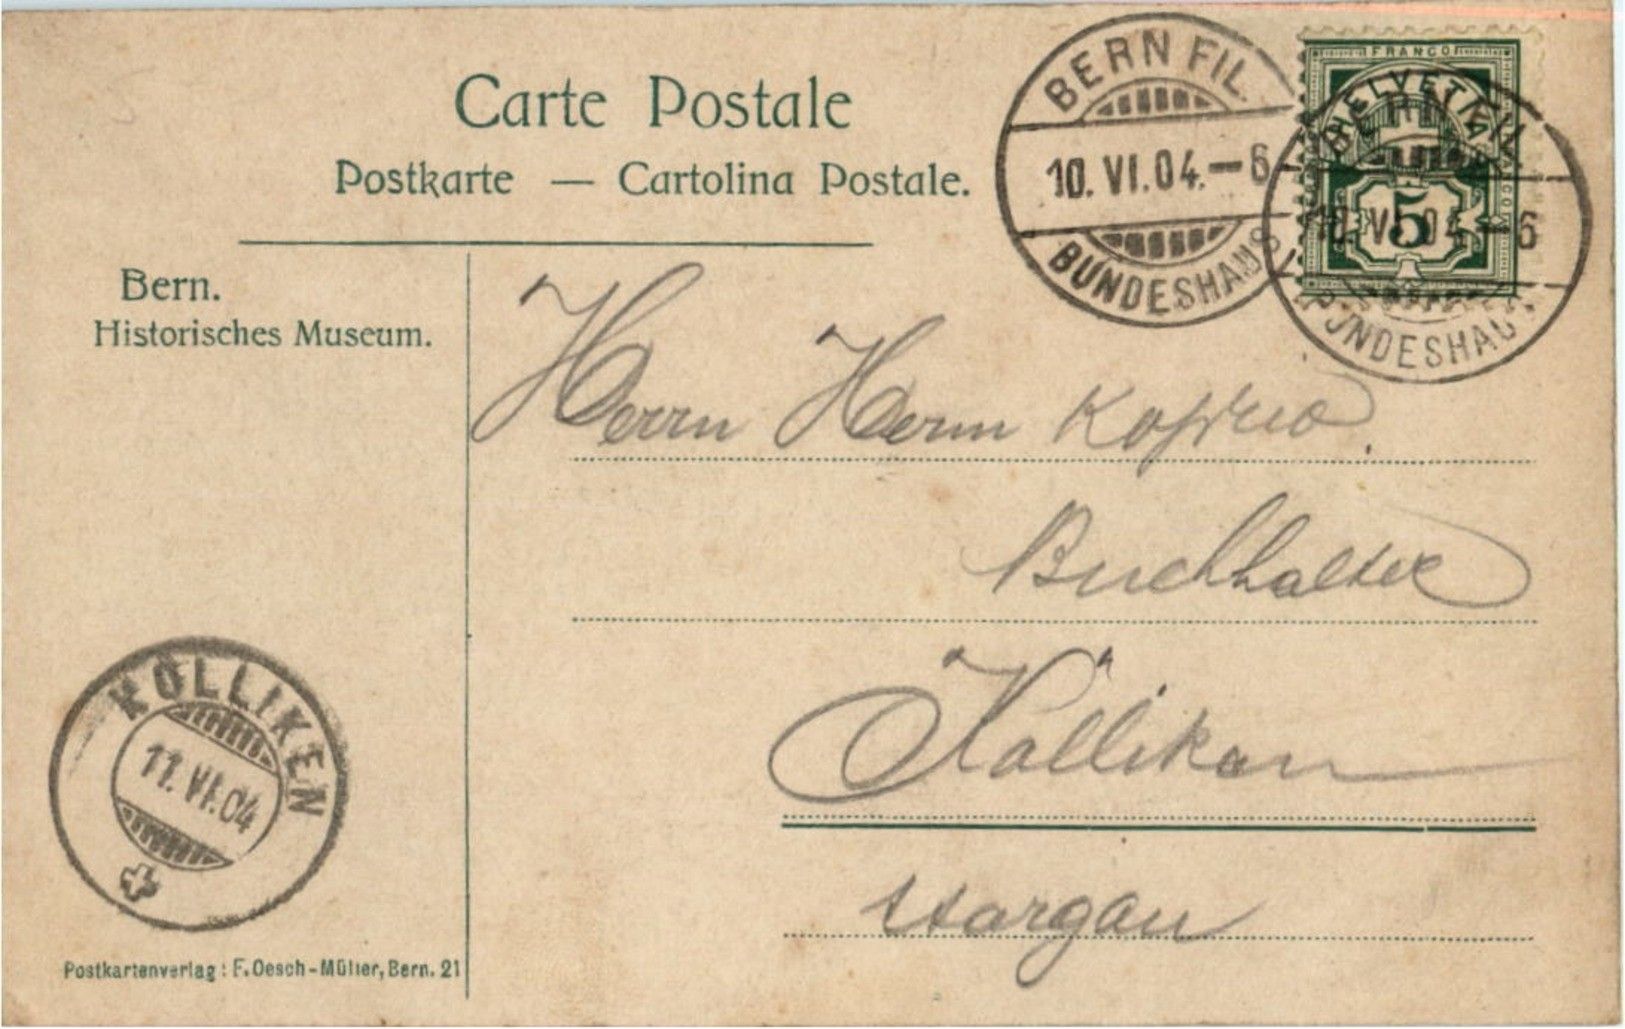 Carte Postale
Postkarte — Cartolina Postale.
BERN FIL.
10. VI. 04.–6
BUNDESHAUS
FRANCO
HELVETIA
5
10. VI. 04.–6
BUNDESHAUS
Bern.
Historisches Museum.
Herrn Herrn
Buchhalter
Kölliken
Aargau
KÖLLIKEN
11. VI. 04
Postkartenverlag : F. Oesch-Müller, Bern. 21